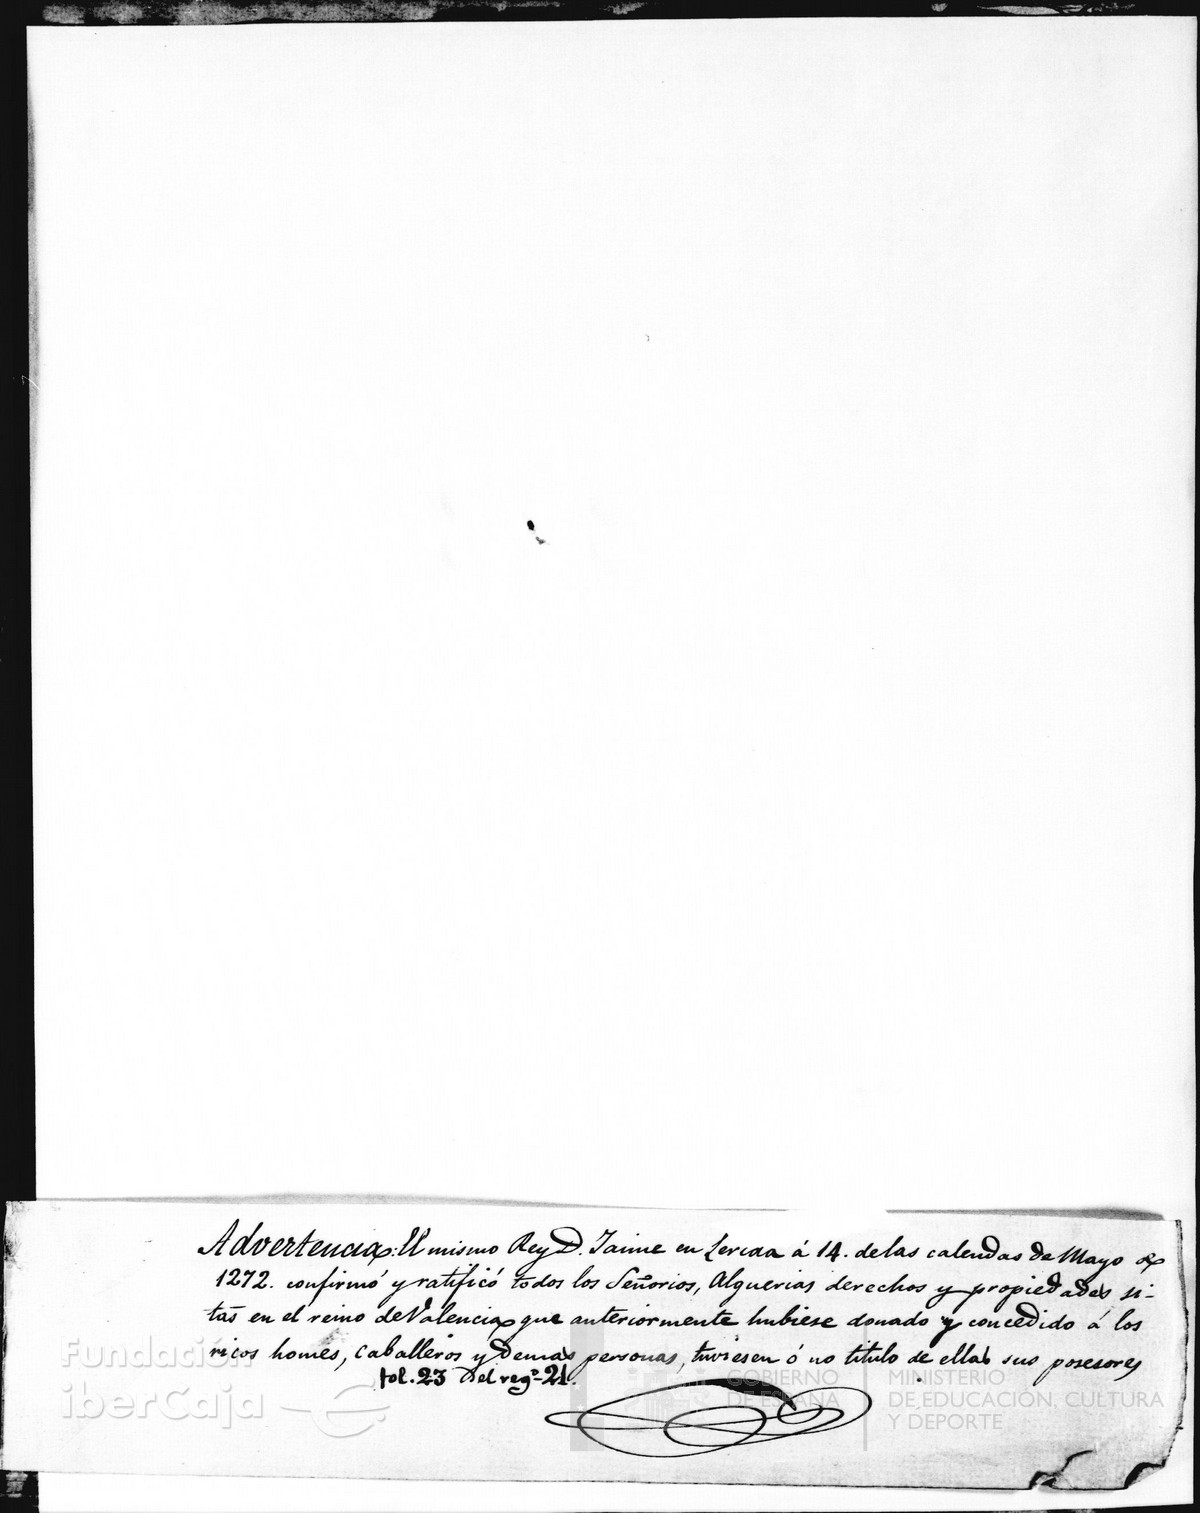 Advertencia: El mismo Rey D. Jaime en Lerida á 14. de las calendas de Mayo de
1272. confirmó y ratificó todos los Señorios, Alquerias derechos y propiedades si-
tas en el reino de Valencia que anteriormente hubiese donado y concedido á los
ricos homes, caballeros y demas personas, tuviesen ó no titulo de ellas sus posesores
fol. 23 del regº 21.
Fundación
iberCaja
GOBIERNO
DE ESPAÑA
MINISTERIO
DE EDUCACIÓN, CULTURA
Y DEPORTE